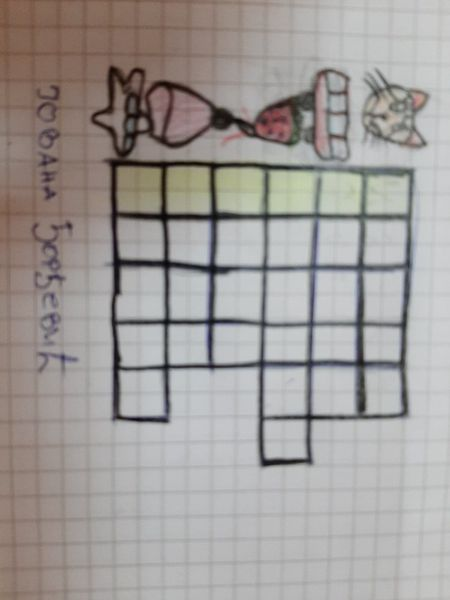 ЈОВАНА Ђорђевић